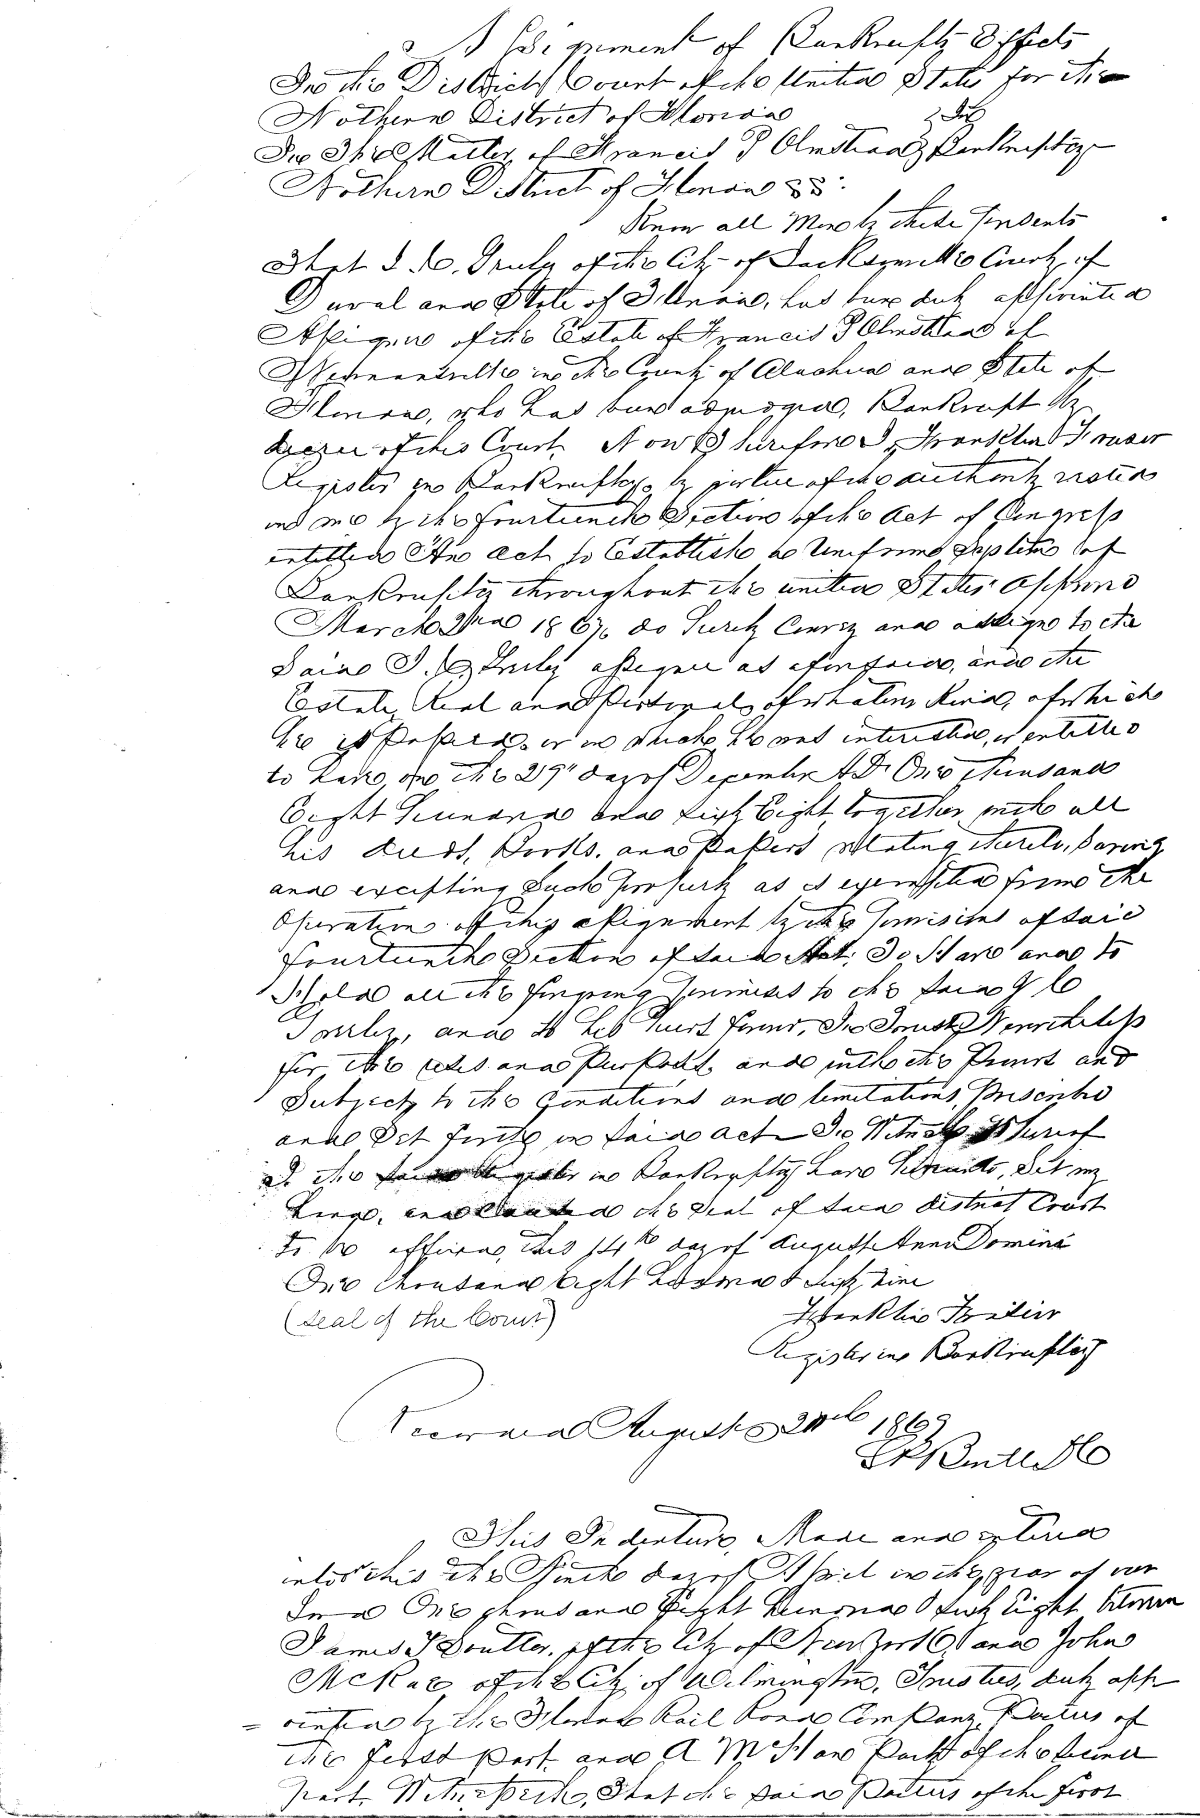 Assignment of Bankrupts Effects
In the District Court of the United States for the
Nothern District of Florida
In
In The Matter of Francis P Olmstead } Bankruptcy
Nothern District of Florida SS:
Know all Men by these Presents
That I. C. Truly of the City of Jacksonville County of
Duval and State of Florida, has been duly appointed
Assignee of the Estate of Francis P Olmstead of
Newnansville in the County of Alachua and State of
Florida, who has been adjudged, Bankrupt by
decree of this Court Now Therefore I, Franklin Fraser
Register in Bankruptcy, by virtue of the authority vested
in me by the fourteenth Section of the Act of Congress
entitled "An Act to Establish a Uniform System of
Bankruptcy throughout the united States" Approved
March 2nd 1867, do hereby Convey and assign to the
Said I. C. Truly assignee as aforesaid, and the
Estate, Real and Personal of whatever Kind, of which
he is Possessed, or in which he was interested, or entitled
to have, on the 29" day of December A.D. One thousand
Eight Hundred and sixty Eight, together with all
his deeds, Books, and Papers relating thereto, Saving
and excepting Such property as is exempted from the
Operation of this assignment by the Provisions of said
fourteenth Section of said Act; To Have and to
Hold all the foregoing Premises to the said I C
Truly, and to his heirs forever, In Trust Nevertheless
for, the uses and Purposes, and with the Powers and
Subject, to the Conditions and limitations, Prescribed
and Set forth in said act In Witness Whereof
I the said Register in Bankruptcy have hereunto, Set my
hand, and caused the Seal of said district Court
to be affixed, this 14th day of August Anno Domini
One thousand Eight hundred & Sixty Nine
(Seal of the Court)
Franklin Fraser
Register in Bankruptcy
Recorded August 24th 1869
This Indenture, Made and entered
into this the Ninth day of April in the year of our
Lord One thousand Eight Hundred & sixty Eight between
James T Soutter, of the City of New York, and John
McRae of the City of Wilmington, Trustees, duly app
= ointed by the Florida Rail Road Company, Parties of
the first part, and A M Party of the second
part, Witnesseth, That the said Parties of the first